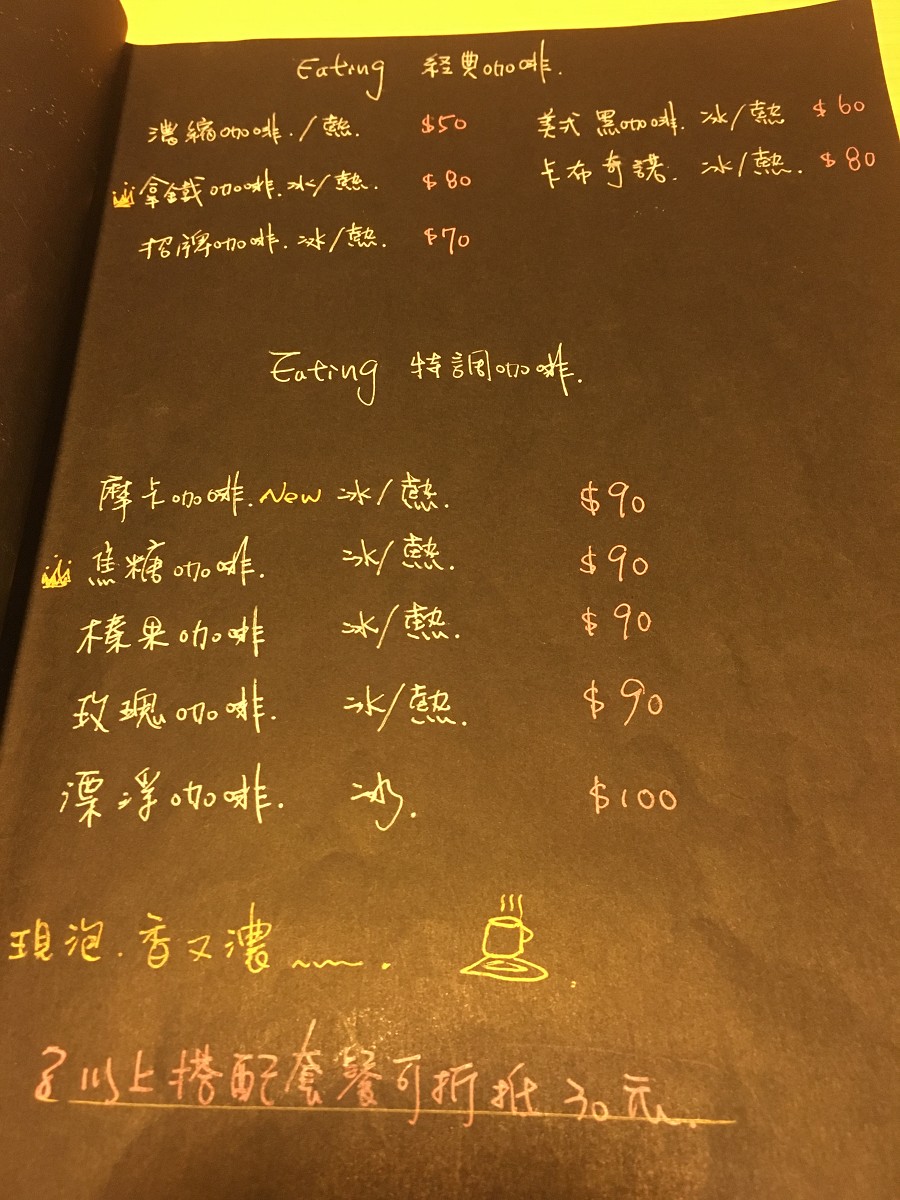 Eating 経典咖啡.
濃縮咖啡./熱. $50 美式黑咖啡. 冰/熱 $60
拿鐵咖啡.冰/熱. $80 卡布奇諾. 冰/熱. $80
招牌咖啡.冰/熱. $70
Eating 特調咖啡.
摩卡咖啡.New 冰/熱. $90
焦糖咖啡. 冰/熱. $90
榛果咖啡 冰/熱. $90
玫瑰咖啡. 冰/熱. $90
漂浮咖啡. 冰. $100
現泡.香又濃~~.
以上搭配套餐可折抵30元.